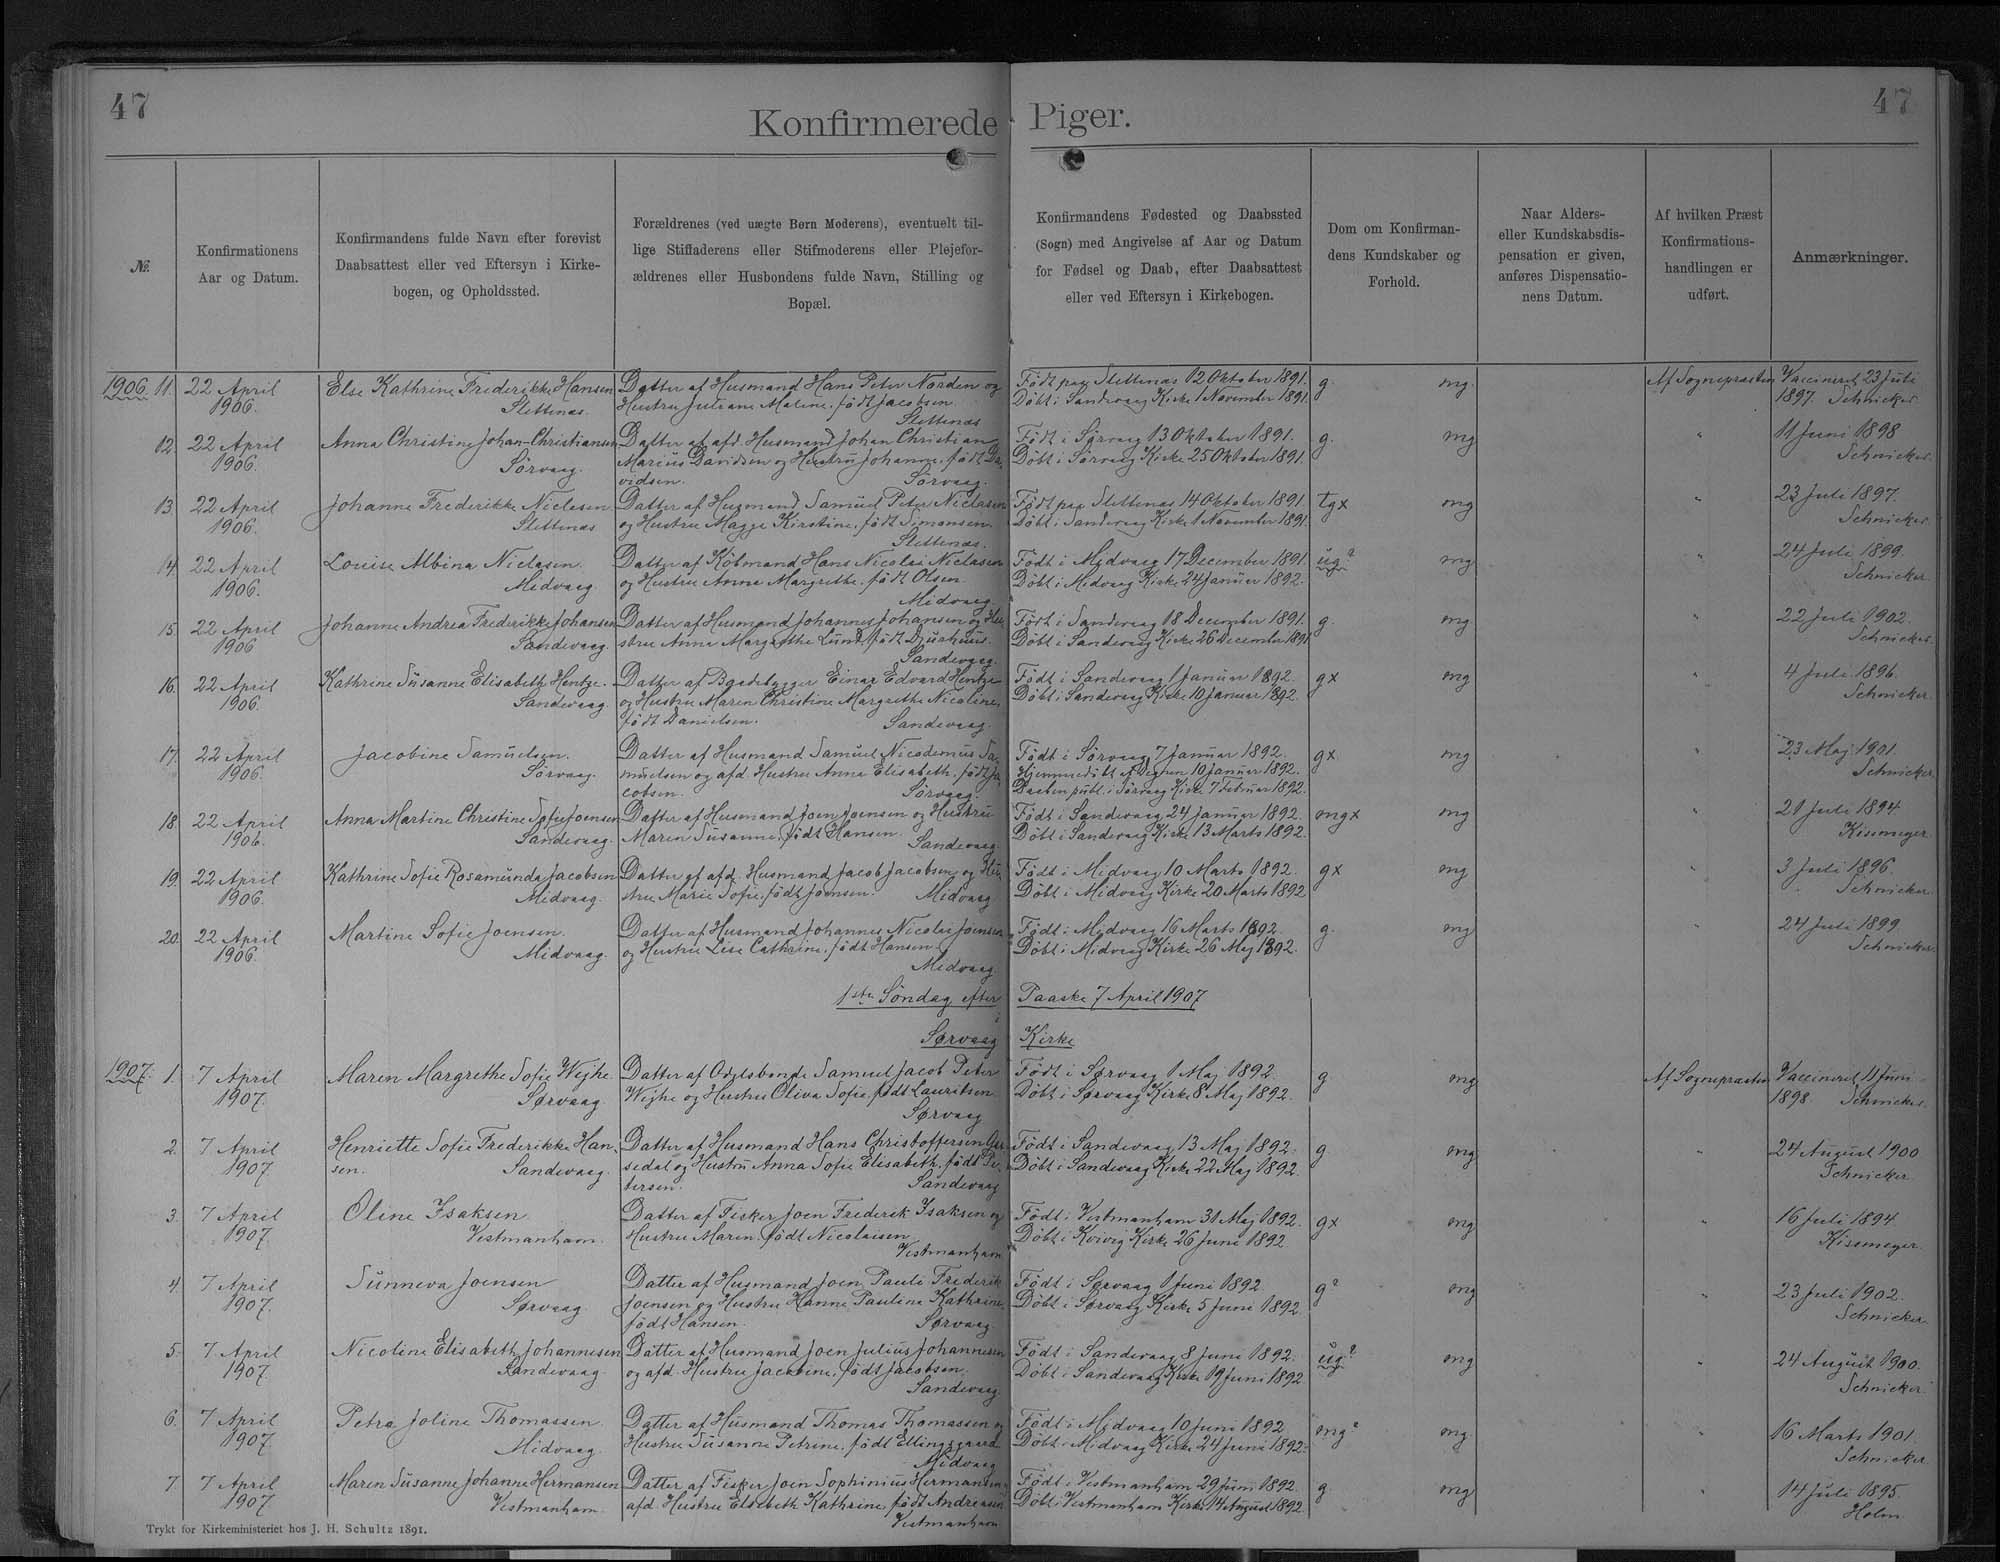 47
47
Konfirmerede Piger.
№.
Konfirmationens
Aar og Datum.
Konfirmandens fulde Navn efter forevist
Daabsattest eller ved Eftersyn i Kirke-
bogen, og Opholdssted.
Forældrenes (ved uægte Børn Moderens), eventuelt til-
lige Stiffaderens eller Stifmoderens eller Plejefor-
ældrenes eller Husbondens fulde Navn, Stilling og
Bopæl.
Konfirmandens Fødested og Daabssted
(Sogn) med Angivelse af Aar og Datum
for Fødsel og Daab, efter Daabsattest
eller ved Eftersyn i Kirkebogen.
Dom om Konfirman-
dens Kundskaber og
Forhold.
Naar Alders-
eller Kundskabsdis-
pensation er given,
anføres Dispensatio-
nens Datum.
Af hvilken Præst
Konfirmations-
handlingen er
udført.
Anmærkninger.
1906. 11. 22 April Else Kathrine Frederikke Hansen Datter af Husmand Hans Peter Norden og Født paa Slettenæs 12 Oktober 1891. g. mg. Af Sognepræsten Vaccineret 23 Juli
1906. Slettenæs. Hustru Juliane Malene, født Jacobsen. Døbt i Sandevaag Kirke 1 November 1891. 1897. Schnicker.
Slettenæs
12. 22 April Anna Christine Johan-Christiansen Datter af afd. Husmand Johan Christian Født i Sørvaag 13 Oktober 1891. g. mg " 11 Juni 1898
1906. Sørvaag. Marius Davidsen og Hustru Johanne, født Da- Døbt i Sørvaag Kirke 25 Oktober 1891. Schnicker.
vidsen. Sørvaag.
13. 22 April Johanne Frederikke Niclasen Datter af Husmand Samuel Peter Niclasen Født paa Slettenæs 14 Oktober 1891. tgx mg " 23 Juli 1897.
1906. Slettenæs og Hustru Magge Kirstine, født Simonsen. Døbt i Sandevaag Kirke 1 November 1891. Schnicker.
Slettenæs.
14. 22 April Louise Albina Niclasen. Datter af Købmand Hans Nicolai Niclasen Født i Midvaag 17 December 1891. ug? mg " 24 Juli 1899.
1906. Midvaag og Hustru Anna Margrethe, født Olsen. Døbt i Midvaag Kirke 24 Januar 1892. Schnicker.
Midvaag.
15. 22 April Johanne Andrea Frederikke Johansen Datter af Husmand Johannes Johansen og Hu- Født i Sandevaag 18 December 1891. g. mg " 22 Juli 1902.
1906 Sandevaag. stru Anna Margrethe Lund, født Djurhuus. Døbt i Sandevaag Kirke 26 December 1891 Schnicker.
Sandevaag.
16. 22 April Kathrine Susanne Elisabeth Hentze. Datter af Baadebygger Einar Edvard Hentze Født i Sandevaag 1 Januar 1892. gx mg " 4 Juli 1896.
1906. Sandevaag. og Hustru Maren Christine Margrethe Nicoline, Døbt i Sandevaag Kirke 10 Januar 1892. Schnicker.
født Danielsen. Sandevaag.
17. 22 April Jacobine Samuelsen. Datter af Husmand Samuel Nicodemus Sa- Født i Sørvaag 7 Januar 1892. gx mg " 23 Maj 1901.
1906. Sørvaag. muelsen og afd. Hustru Anna Elisabeth, født Ja- Hjemmedøbt af Degnen 10 Januar 1892. Schnicker.
cobsen. Sørvaag. Daaben publ. i Sørvaag Kirke 7 Februar 1892.
18. 22 April Anna Martine Christine Sofie Joensen Datter af Husmand Joen Joensen og Hustru Født i Sandevaag 24 Januar 1892. mgx mg " 21 Juli 1894.
1906. Sandevaag. Maren Susanne, født Hansen. Sandevaag. Døbt i Sandevaag Kirke 13 Marts 1892. Kissmeyer.
19. 22 April Kathrine Sofie Rosamunda Jacobsen Datter af afd. Husmand Jacob Jacobsen og Hu- Født i Midvaag 10 Marts 1892. gx mg " 3 Juli 1896.
1906. Midvaag. stru Marie Sofie, født Joensen. Midvaag Døbt i Midvaag Kirke 20 Marts 1892 Schnicker.
20. 22 April Martine Sofie Joensen. Datter af Husmand Johannes Nicolai Joensen Født i Midvaag 16 Marts 1892. g. mg " 24 Juli 1899
1906. Midvaag. og Hustru Lise Cathrine, født Hansen. Døbt i Midvaag Kirke 26 Maj 1892. Schnicker.
Midvaag.
1ste Søndag efter Paaske 7 April 1907
i
Sørvaag Kirke
1907. 1. 7 April Maren Margrethe Sofie Wejhe. Datter af Odelsbonde Samuel Jacob Peter Født i Sørvaag 1 Maj 1892. g mg Af Sognepræsten Vaccineret 11 Juni
1907. Sørvaag Wejhe og Hustru Oliva Sofie, født Lauritsen. Døbt i Sørvaag Kirke 8 Maj 1892. 1898. Schnicker.
Sørvaag
2. 7 April Henriette Sofie Frederikke Han- Datter af Husmand Hans Christoffersen Født i Sandevaag 13 Maj 1892. g. mg 24 August 1900
1907 sen. Sandevaag. sedal og Hustru Anna Sofie Elisabeth, født Pe- Døbt i Sandevaag Kirke 22 Maj 1892. Schnicker.
tersen. Sandevaag
3. 7 April Oline Isaksen Datter af Fisker Joen Frederik Isaksen og Født i Vestmanham 31 Maj 1892. gx mg " 16 Juli 1894.
1907. Vestmanham. Hustru Maren, født Nicolaisen. Døbt i Kvivig Kirke 26 Juni 1892 Kissmeyer.
Vestmanham
4. 7 April Sunneva Joensen Datter af Husmand Joen Pauli Frederik Født i Sørvaag 1 Juni 1892 g? mg " 23 Juli 1902.
1907. Sørvaag Joensen og Hustru Hanne Pauline Kathrine, Døbt i Sørvaag Kirke 5 Juni 1892. Schnicker.
født Hansen. Sørvaag.
5. 7 April Nicoline Elisabeth Johannesen Datter af Husmand Joen Julius Johannesen Født i Sandevaag 8 Juni 1892. ug? mg " 24 August 1900.
1907. Sandevaag og afd. Hustru Jacobine, født Jacobsen. Døbt i Sandevaag Kirke 19 Juni 1892. Schnicker.
Sandevaag
6. 7 April Petra Joline Thomassen. Datter af Husmand Thomas Thomassen og Født i Midvaag 10 Juni 1892 mg? mg " 16 Marts 1901.
1907. Midvaag. Hustru Susanne Petrine, født Ellingsgaard. Døbt i Midvaag Kirke 24 Juni 1892. Schnicker.
Midvaag
7. 7 April Maren Susanne Johanne Hermansen Datter af Fisker Joen Sophinius Hermansen Født i Vestmanham 29 Juni 1892. g. mg " 14 Juli 1895.
1907 Vestmanham. afd. Hustru Elsebeth Kathrine, født Andreasen Døbt i Vestmanham Kirke 14 August 1892. Holm.
Vestmanham.
Trykt for Kirkeministeriet hos J. H. Schultz 1891.